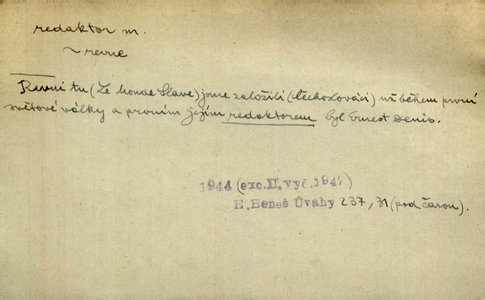 redaktor m.
~ revue
Revui tu (Le Monde Slave) jsme založili (Čechoslováci) už během první
světové války a prvním jejím redaktorem byl Ernest Denis.
1944 (exc. II. vyd. 1947.)
E. Beneš Úvahy 237, 31 (pod čarou).